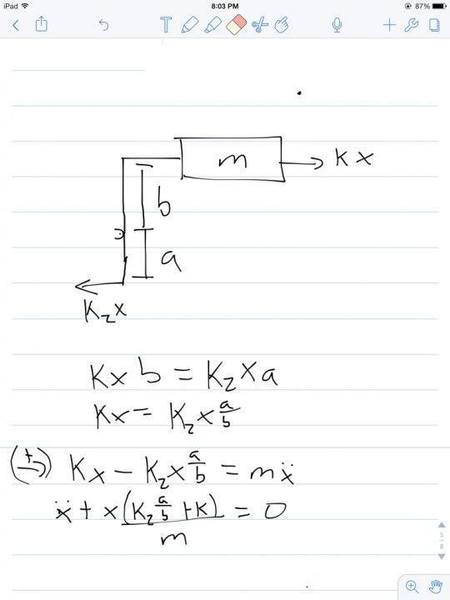 iPad 8:03 PM 87%
T
m → Kx
b
a
K₂x
Kx b = K₂xa
Kx = K₂x a/b
(→+) Kx − K₂x a/b = mẍ
ẍ + x (K₂ a/b + K)/m = 0
5
8